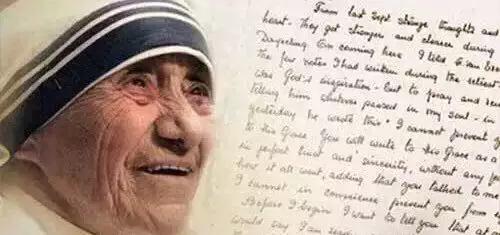 From last Sept. strange thoughts and
heart. They got stronger and clearer during
Darjeeling. On coming here I told
the few notes I had written during the retreat
was God's inspiration - but to pray and
telling him whatever passed in my soul - in
yesterday he wrote this " I cannot prevent
to His Grace. You will write to His Grace as a
in perfect trust and sincerity, without any
how it all went, adding that you talked to me
I cannot in conscience prevent you from
Before I begin I want to tell you that at
would say I am ready